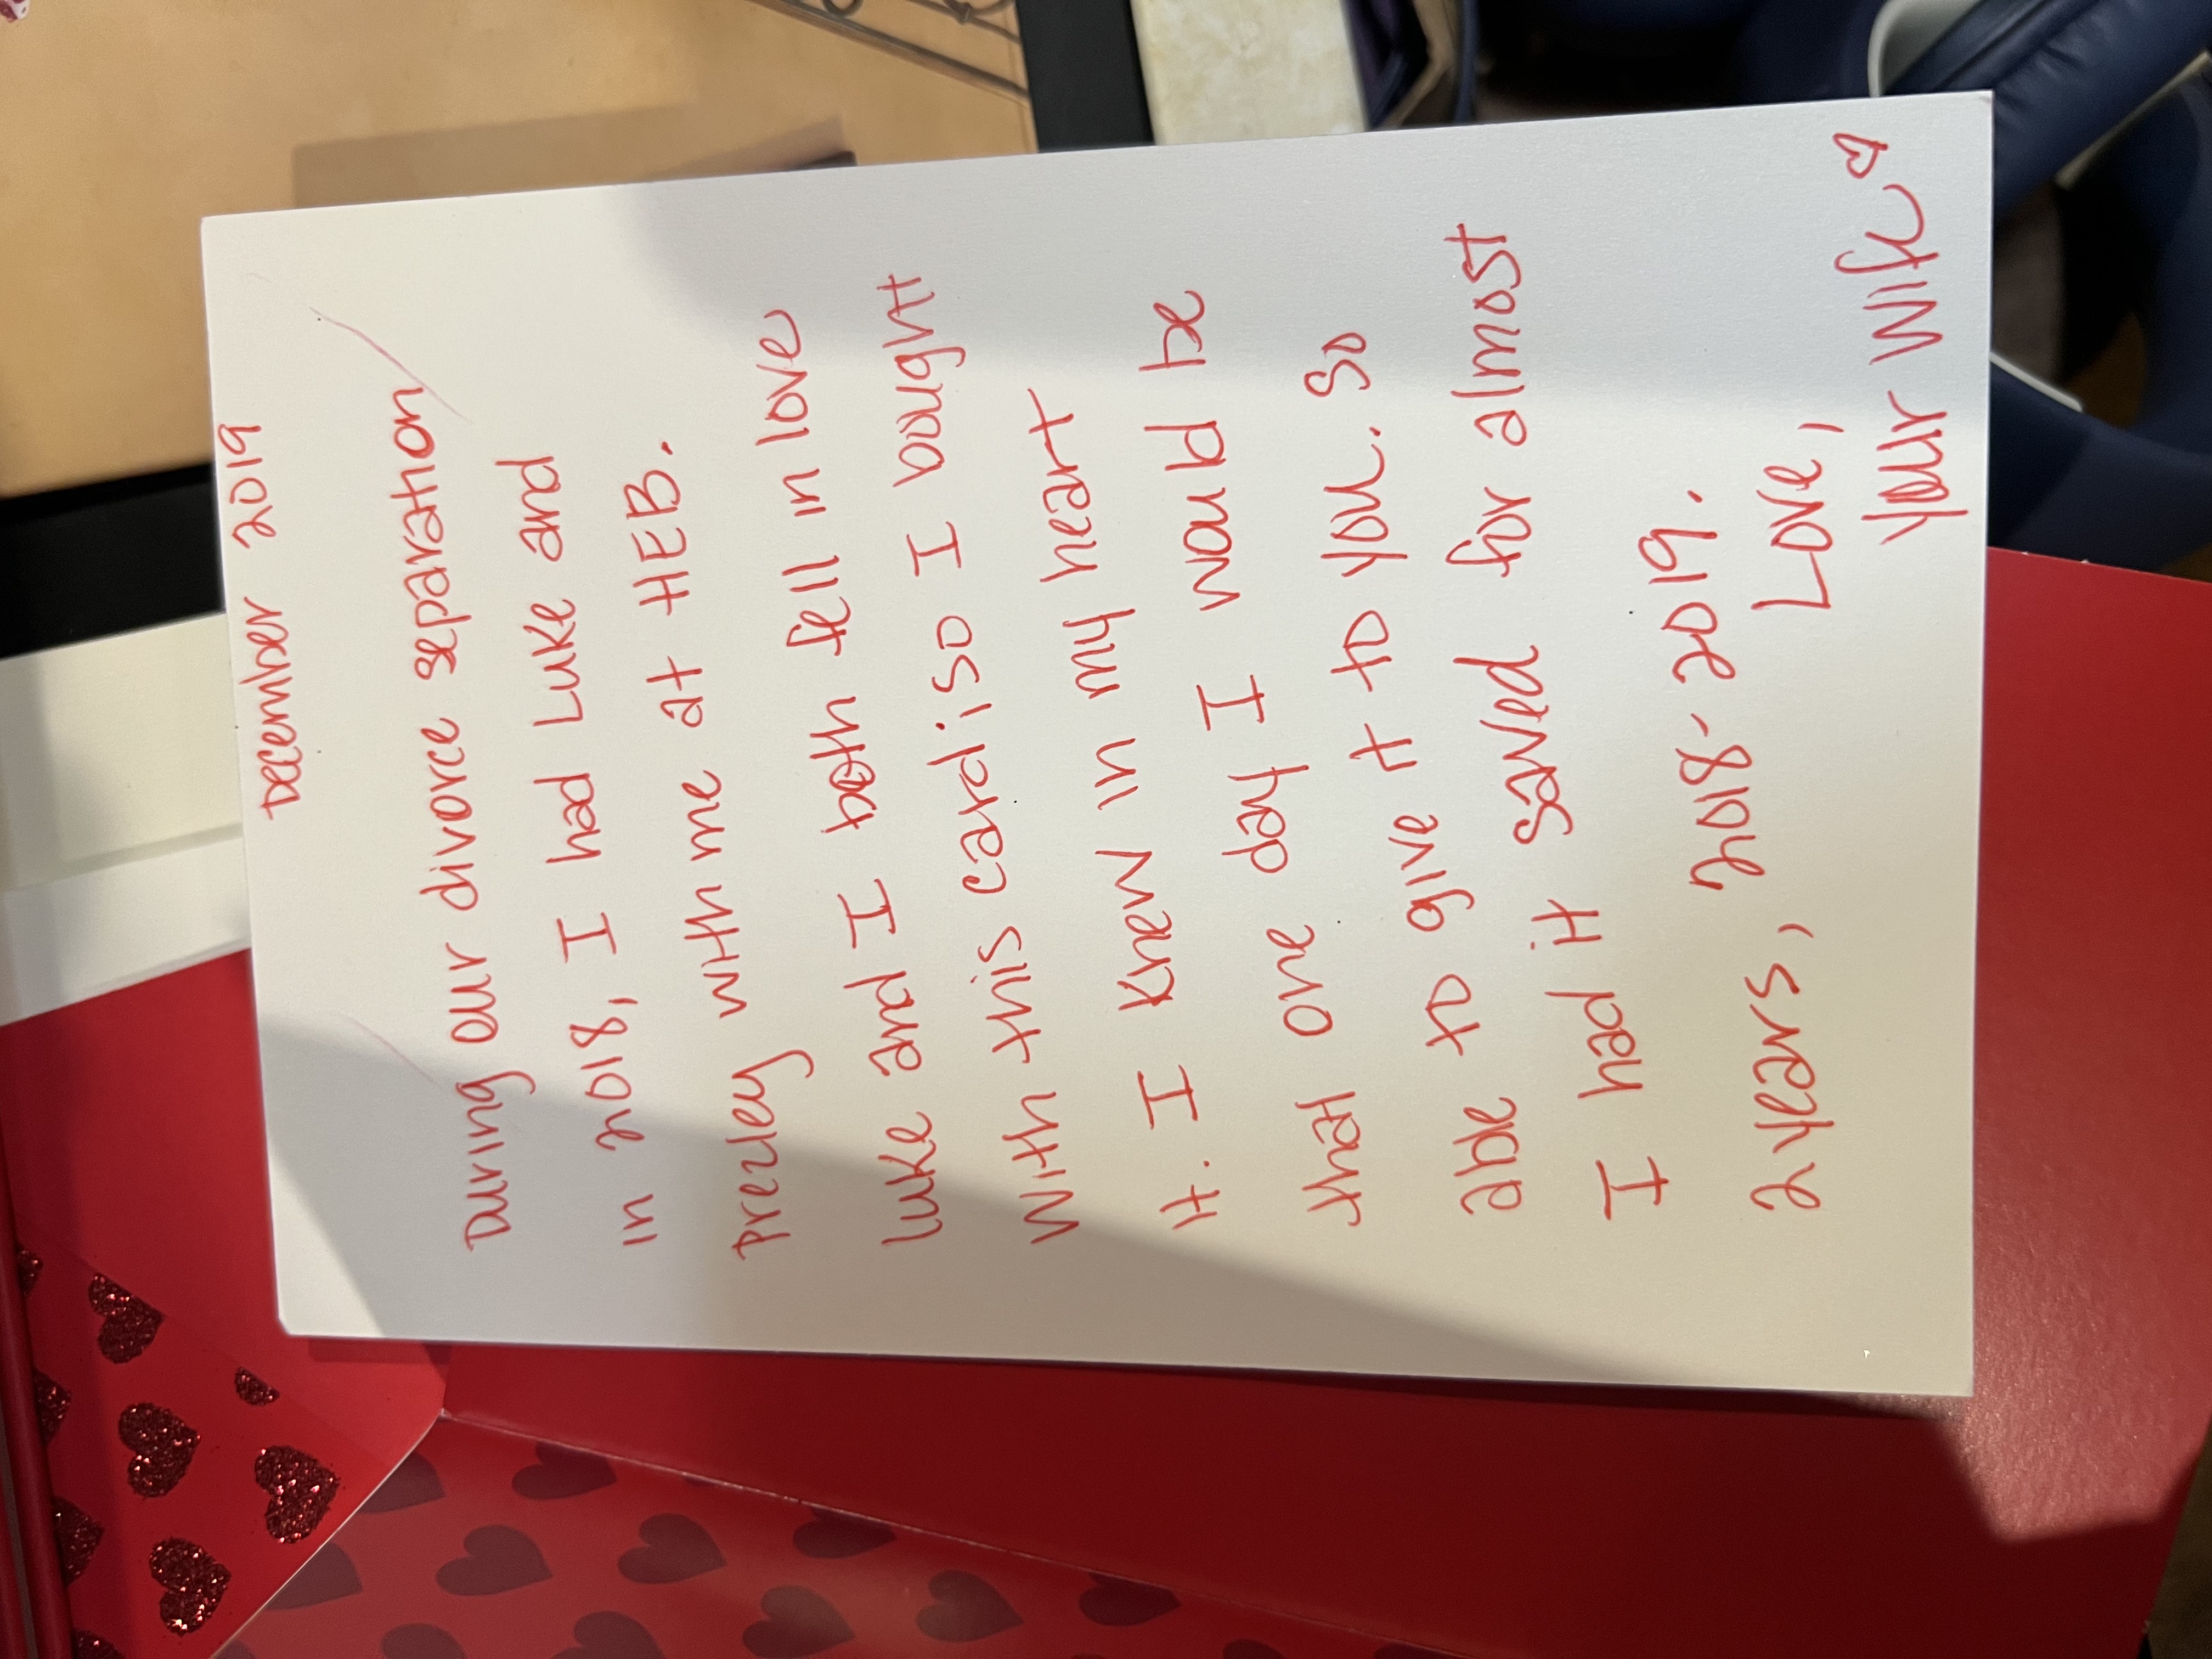 December 2019
During our divorce separation
in 2018, I had Luke and
Presley with me at HEB.
Luke and I both fell in love
with this card! So I bought
it. I knew in my heart
that one day I would be
able to give it to you. So
I had it saved for almost
2 years, 2018-2019.
Love,
Your Wife